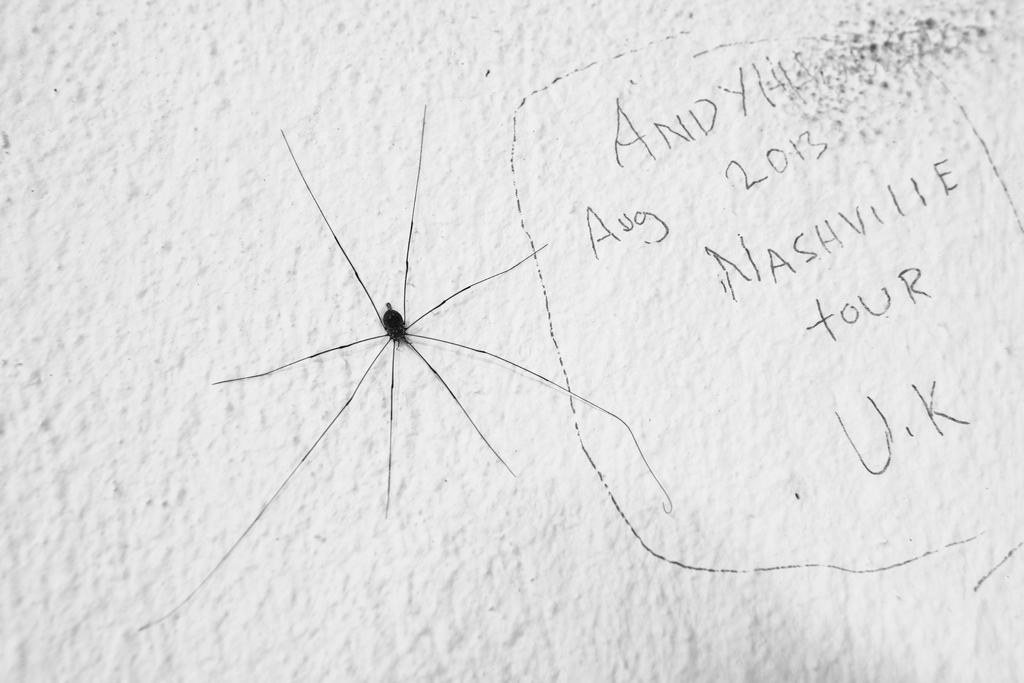 ANDY
Aug 2013
NASHVILLE
tOUR
U.K